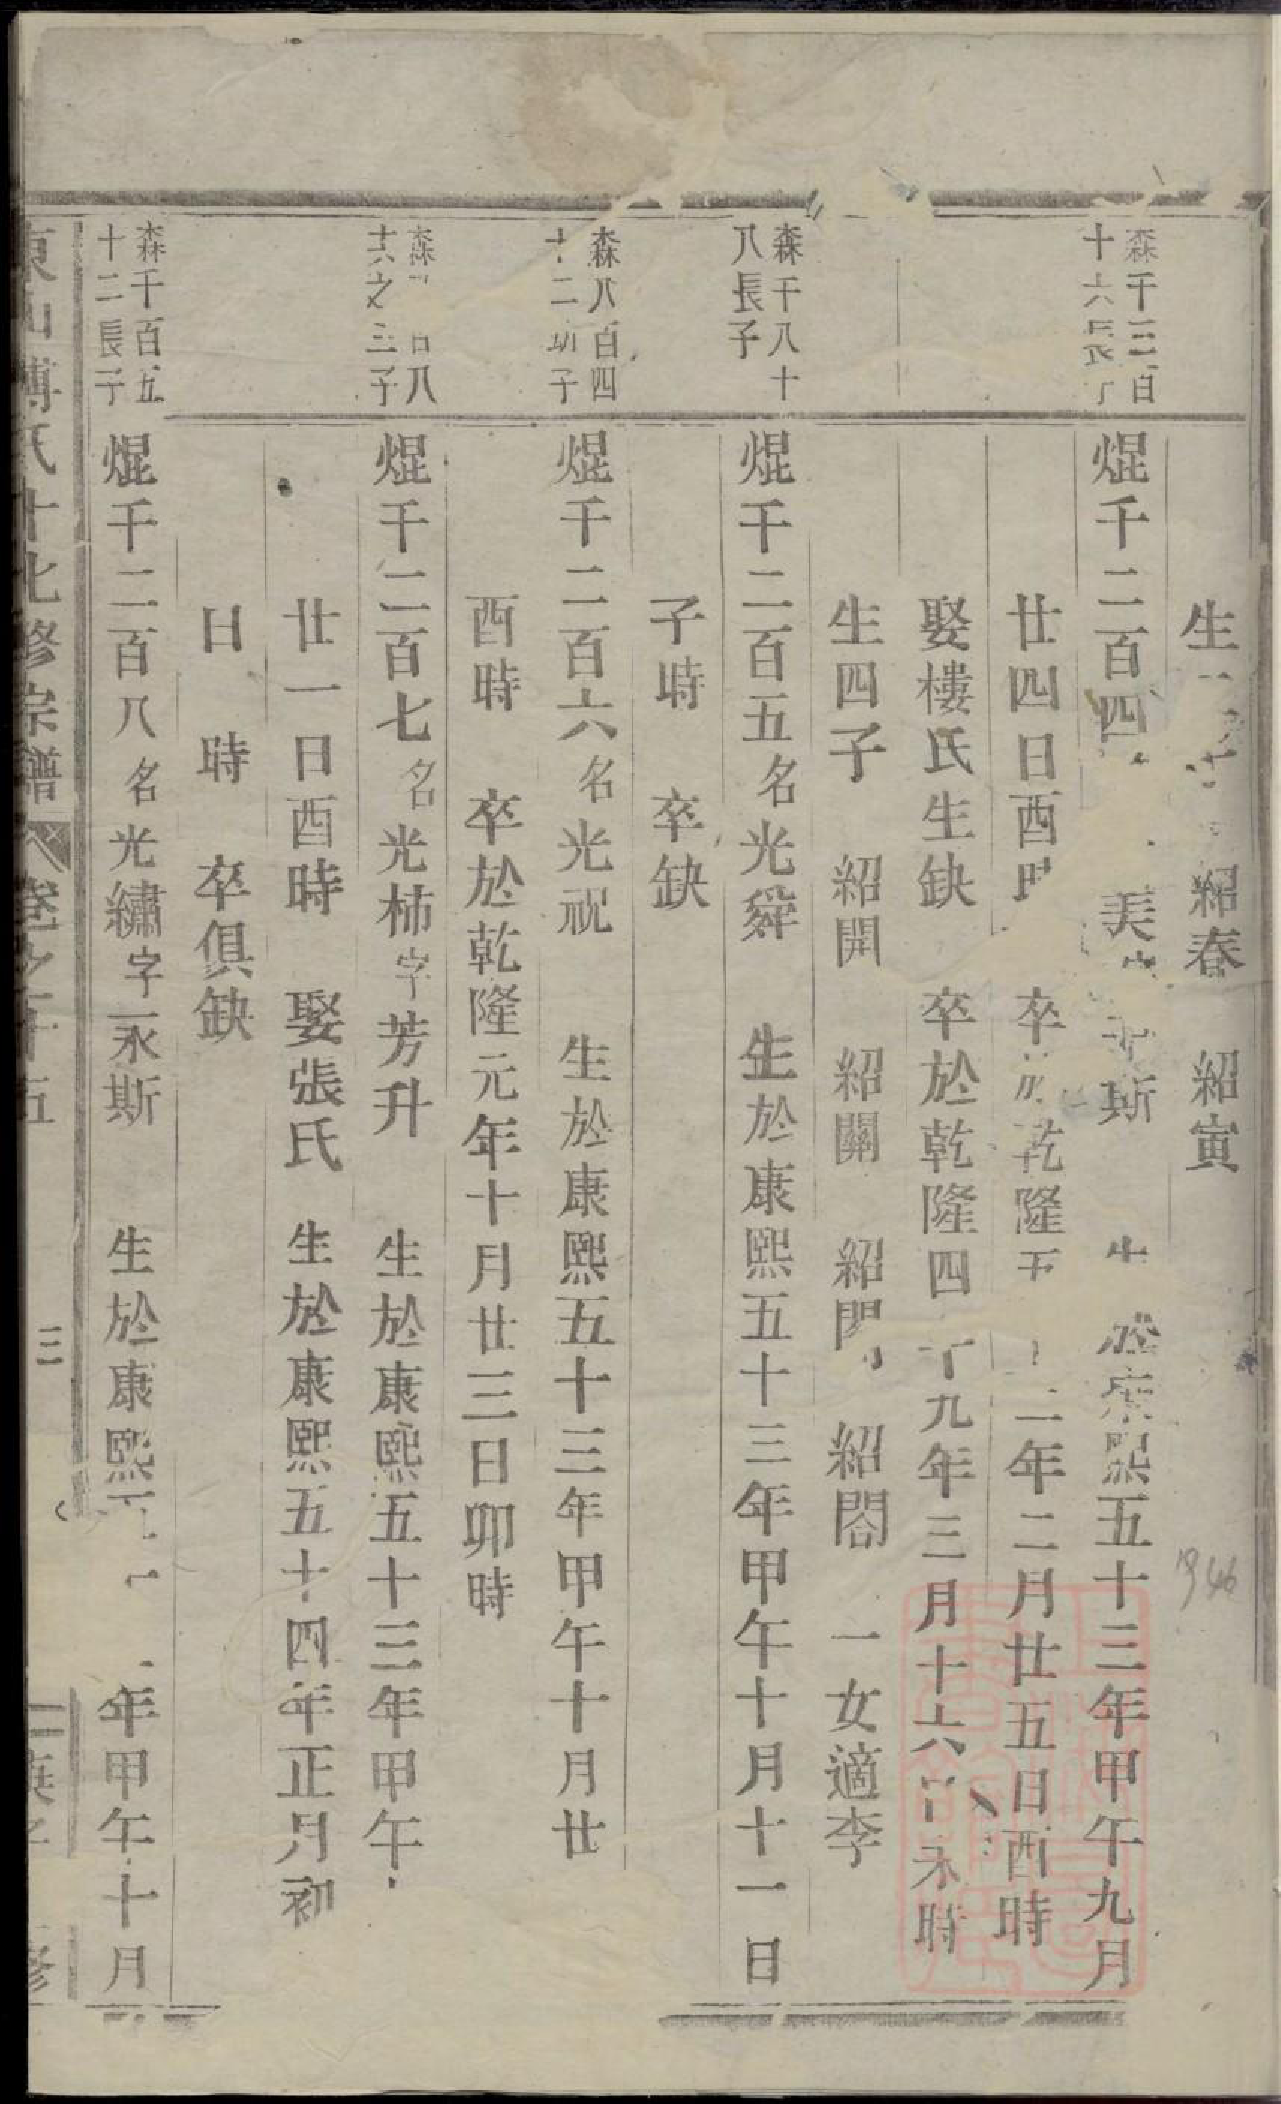 生 紹春 紹寅
森千三百
十六長
焜千二百四 美 斯 生於康熙五十三年甲午九月
廿四日酉時 卒於乾隆 二年二月廿五日酉時
娶樓氏生缺 卒於乾隆四十九年三月十六日 時
生四子 紹開 紹關 紹門 紹閤 一女適李
森千八十
八長子
焜千二百五名光舜 生於康熙五十三年甲午十月十一日
子時 卒缺
森八百四
十二 子
焜千二百六名光祝 生於康熙五十三年甲午十月廿
酉時 卒於乾隆元年十月廿三日卯時
森 百八
之三子
焜千二百七名光柿字芳升 生於康熙五十三年甲午
廿一日酉時 娶張氏 生於康熙五十四年正月初
日 時 卒俱缺
森千百五
十二長子
焜千二百八名光繡字永斯 生於康熙 年甲午十月
東山傅氏十七修宗譜 卷之 十五 三